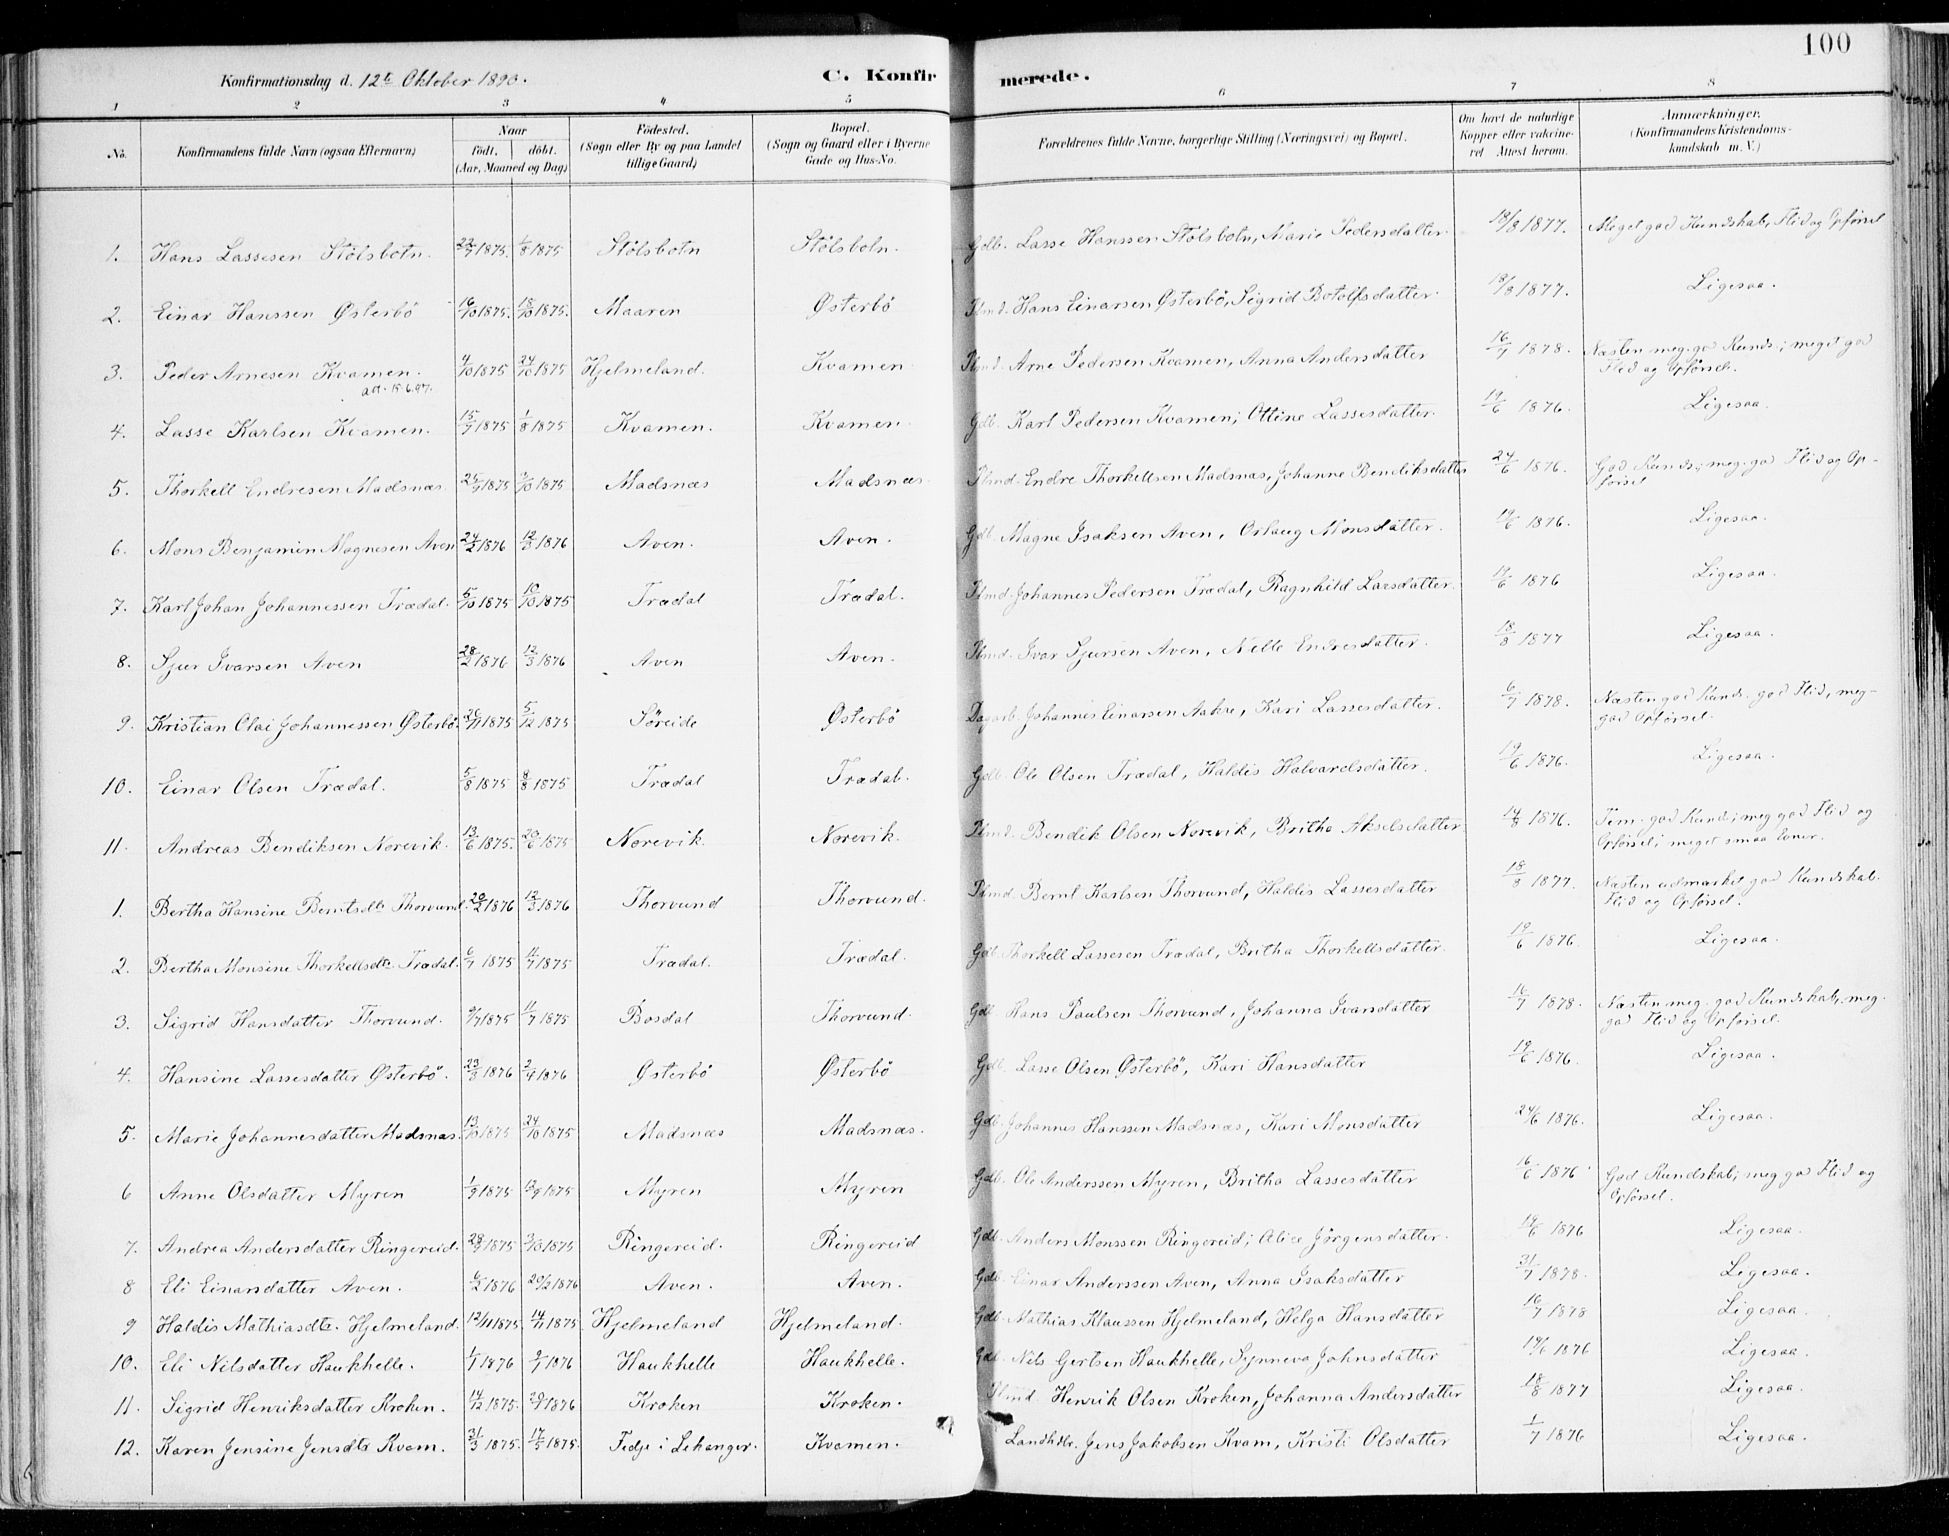 100
Konfirmationsdag d. 12te Oktober 1890. C. Konfirmerede.
1 2 3 4 5 6 7 8
No. Konfirmandens fulde Navn (ogsaa Efternavn) Naar födt, döbt. (Aar, Maaned og Dag) Födested. (Sogn eller By og paa Landet tillige Gaard) Bopæl. (Sogn og Gaard eller i Byerne Gade og Hus-No. Forældrenes fulde Navne, borgerlige Stilling (Næringsvei) og Bopæl. Om havt de naturlige Kopper eller vaccineret Attest herom. Anmærkninger. (Konfirmandens Kristendomskundskab m. V.)
1. Hans Lassesen Stölsbotn. 22/7 1875. 1/8 1875 Stölsbotn Stölsbotn. Gdb. Lasse Hanssen Stölsbotn, Marie Pedersdatter. 18/8 1877. Meget god Kundskab, Flid og Opförsel
2. Einar Hanssen Østerbö 16/10 1875. 18/10 1875. Maaren Østerbö Plmd. Hans Einarsen Østerbö, Sigrid Botolfsdatter. 18/8 1877. Ligesaa.
3. Peder Arnesen Kvamen. 4/10 1875 24/10 1875 Hjelmeland. Kvamen. Plmd. Arne Pedersen Kvamen, Anna Andersdatter 16/7 1878. Næsten meg. god Kunds.; meget god
att. 15.6.97. Flid og Opförsel.
4. Lasse Karlsen Kvamen. 15/7 1875 1/8 1875 Kvamen. Kvamen. Gdb. Karl Pedersen Kvamen; Olline Lassesdatter. 19/6 1876. Ligesaa.
5. Thorkell Endresen Madsnæs 25/9 1875 3/10 1875 Madsnæs Madsnæs. Plmd. Endre Thorkellsen Madsnæs, Johanne Bendiksdatter 24/6 1876. God Kunds.; meg. god Flid og Op-
försel
6. Mons Benjamin Magnesen Aven 24/2 1876 12/3 1876 Aven. Aven. Gdb. Magne Isaksen Aven, Orlaug Monsdatter. 19/6 1876. Ligesaa.
7. Karl Johan Johannessen Trædal. 5/10 1875 10/10 1875 Trædal Trædal. Plmd. Johannes Pedersen Trædal, Ragnhild Larsdatter. 17/6 1876 Ligesaa.
8. Sjur Ivarsen Aven 28/2 1876 12/3 1876 Aven Aven. Plmd. Ivar Sjursen Aven, Nille Endresdatter. 18/8 1877 Ligesaa.
9. Kristian Olai Johannessen Østerbö. 26/11 1875 5/12 1875 Söreide Østerbö Dagarb. Johannes Einarsen Aakre, Kari Lassesdatter. 6/7 1878. Næsten god Kunds. god Flid, meg-
god Opförsel.
10. Einar Olsen Trædal. 5/8 1875 8/8 1875 Trædal Trædal. Gdb. Ole Olsen Trædal, Haldis Halvardsdatter. 19/6 1876. Ligesaa.
11. Andreas Bendiksen Norevik. 13/6 1875. 20/6 1875 Norevik. Norevik. Plmd. Bendik Olsen Norevik, Britha Akselsdatter 14/8 1876. Tem. god Kund; meg god Flid og
Opförsel; meget smaa Evner.
1. Bertha Hansine Berntsdt. Thorvund. 20/2 1876 12/3 1876 Thorvund Thorvund. Plmd. Bernt Karlsen Thorvund, Haldis Lassesdatter 18/8 1877. Næsten udmærket god Kundskab.
Flid og Opförsel.
2. Bertha Monsine Thorkellsdt. Trædal. 6/7 1875 11/7 1875 Trædal. Trædal. Gdb. Thorkell Lassesen Trædal, Britha Thorkellsdatter. 19/6 1876. Ligesaa.
3. Sigrid Hansdatter Thorvund. 9/7 1875 11/7 1875 Bosdal Thorvund. Gdb. Hans Paulsen Thorvund, Johanna Ivarsdatter 16/7 1878. Næsten meg. god Kundskab, meg.
god Flid og Opförsel.
4. Hansine Lassesdatter Østerbö. 23/3 1876 2/4 1876 Østerbö Østerbö Gdb. Lasse Olsen Østerbö, Kari Hansdatter 19/6 1876. Ligesaa.
5. Marie Johannesdatter Madsnæs. 13/10 1875 24/10 1875 Madsnæs Madsnæs. Gdb. Johannes Hanssen Madsnæs, Kari Monsdatter 24/6 1876. Ligesaa.
6 Anne Olsdatter Myren 1/9 1875 12/9 1875 Myren Myren Gdb. Ole Anderssen Myren, Britha Lassesdatter 16/6 1876 God Kundskab; meg god Flid og
Opförsel.
7. Andrea Andersdatter Ringereid. 28/9 1875 3/10 1875 Ringereid. Ringereid Gdb. Anders Monssen Ringereid; Alice Jörgensdatter. 19/6 1876 Ligesaa.
8 Eli Einarsdatter Aven. 6/2 1876 20/2 1876 Aven. Aven. Gdb. Einar Anderssen Aven, Anna Isaksdatter 31/7 1878. Ligesaa.
9 Haldis Mathiasdt. Hjelmeland. 12/11 1875 14/11 1875 Hjelmeland Hjelmeland. Gdb. Mathias Klaussen Hjelmeland, Helga Hansdatter 16/7 1878 Ligesaa.
10. Eli Nilsdatter Haukhelle. 1/7 1876 9/7 1876 Haukhelle Haukhelle. Gdb. Nils Gertsen Haukhelle, Synneva Johnsdatter 19/6 1876 Ligesaa.
11. Sigrid Henriksdatter Kroken. 14/12 1875. 1876 Kroken Kroken. Plmd. Henrik Olsen Kroken, Johanna Andersdatter 18/8 1877 Ligesaa.
12. Karen Jensine Jensdt. Kvam. 31/3 1875. 17/5 1875. Fedje i Lehanger. Kvamen. Landhdlr. Jens Jakobsen Kvam, Kristi Olsdatter 1/7 1876 Ligesaa.